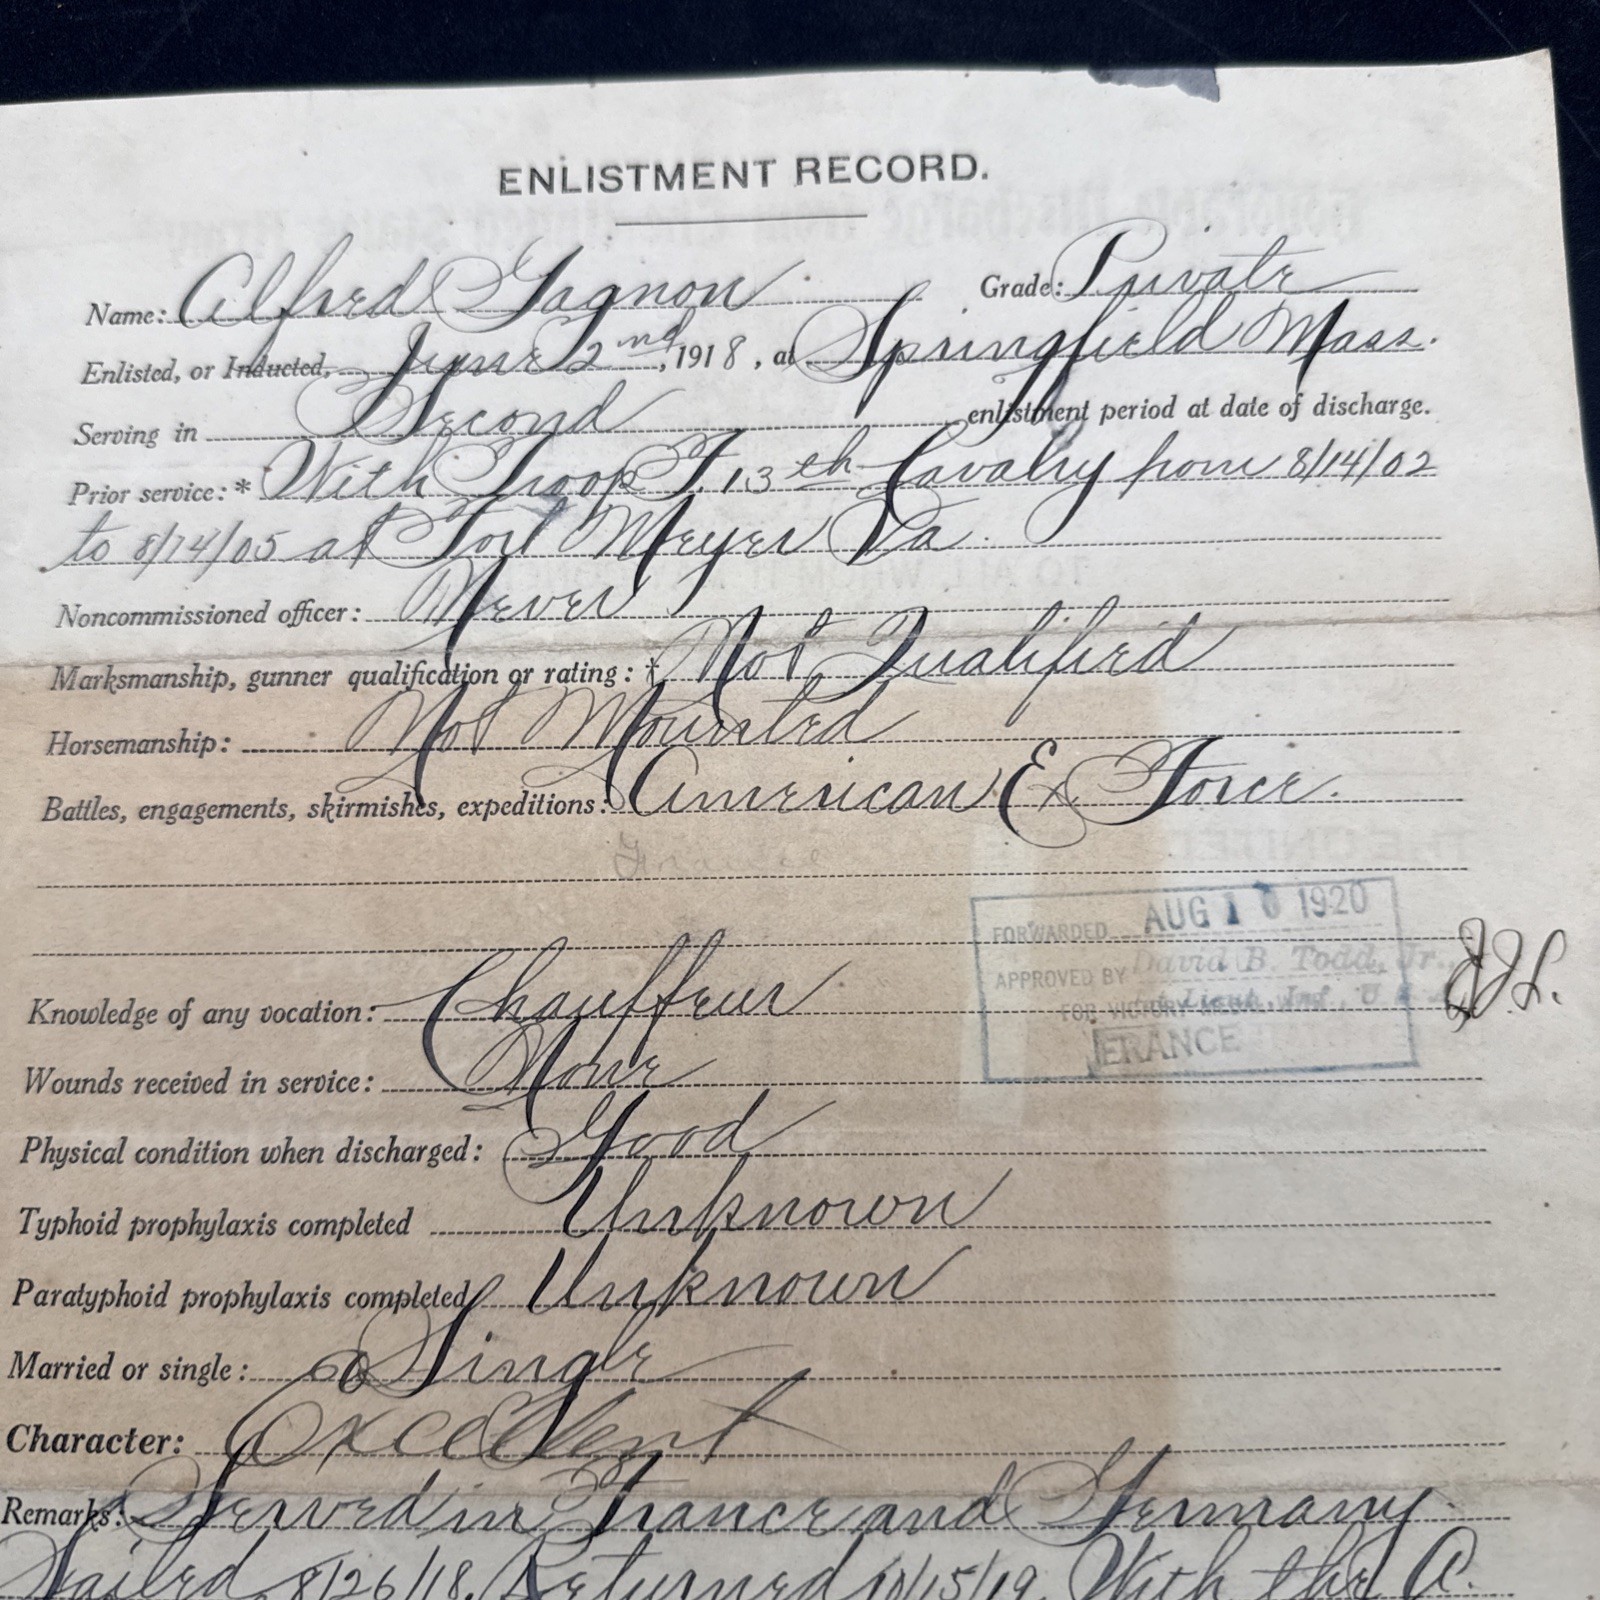 ENLISTMENT RECORD.
Name: Alfred Gagnon Grade: Private
Enlisted, or Inducted, June 2nd, 1918, at Springfield Mass.
Serving in Second enlistment period at date of discharge.
Prior service:* With Troop F. 13th Cavalry from 8/14/02
to 8/14/05 at Fort Meyer Va.
Noncommissioned officer: Never
Marksmanship, gunner qualification or rating:† Not Qualified
Horsemanship: Not Mounted
Battles, engagements, skirmishes, expeditions: American Ex Force.
France
FORWARDED AUG 1 1920
APPROVED BY David B. Todd, Jr.,
FOR VICTORY MEDAL Lieut., Inf., U S A
FRANCE
Knowledge of any vocation: Chauffeur
Wounds received in service: None
Physical condition when discharged: Good
Typhoid prophylaxis completed Unknown
Paratyphoid prophylaxis completed Unknown
Married or single: Single
Character: Excellent
Remarks: Served in France and Germany.
Sailed 8/26/18. Returned 10/15/19. With the A.